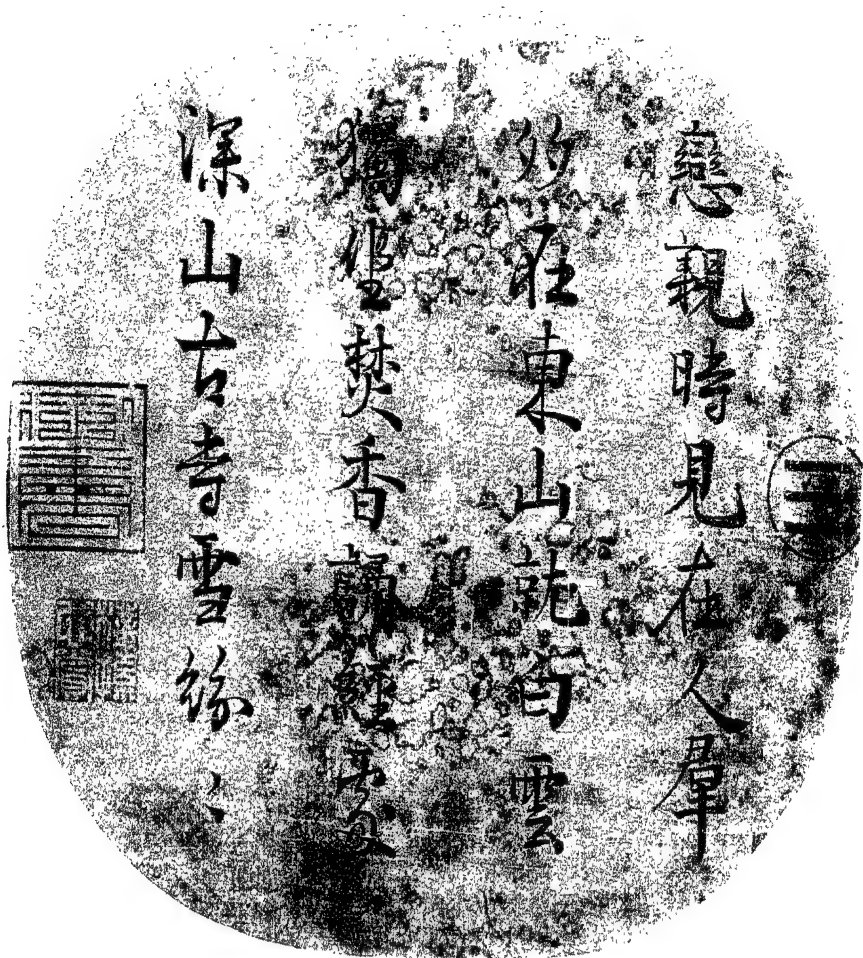 戀親時見在人羣
多在東山就白雲
獨坐焚香誦經處
深山古寺雪紛〻
御書